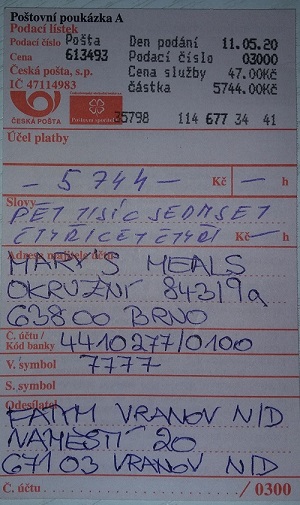 Poštovní poukázka A
Podací lístek
Podací číslo Pošta Den podání 11.05.20
613493 Podací číslo 03000
Cena Cena služby 47.00Kč
Česká pošta, s.p. částka 5744.00Kč
IČ 47114983
ČESKÁ POŠTA Poštovní spořitelna 35798 114 677 34 41
Účel platby
– 5744 – Kč – h
Slovy
PĚT TISÍC SEDMSET
ČTYŘICET ČTYŘI Kč – h
Adresa majitele účtu
MARY'S MEALS
OKRUŽNÍ 843/9a
63800 BRNO
Č. účtu / Kód banky 4410277/0100
V. symbol 7777
S. symbol
Odesílatel
FATYM VRANOV N/D
NÁMĚSTÍ 20
67103 VRANOV N/D
Č. účtu / 0300